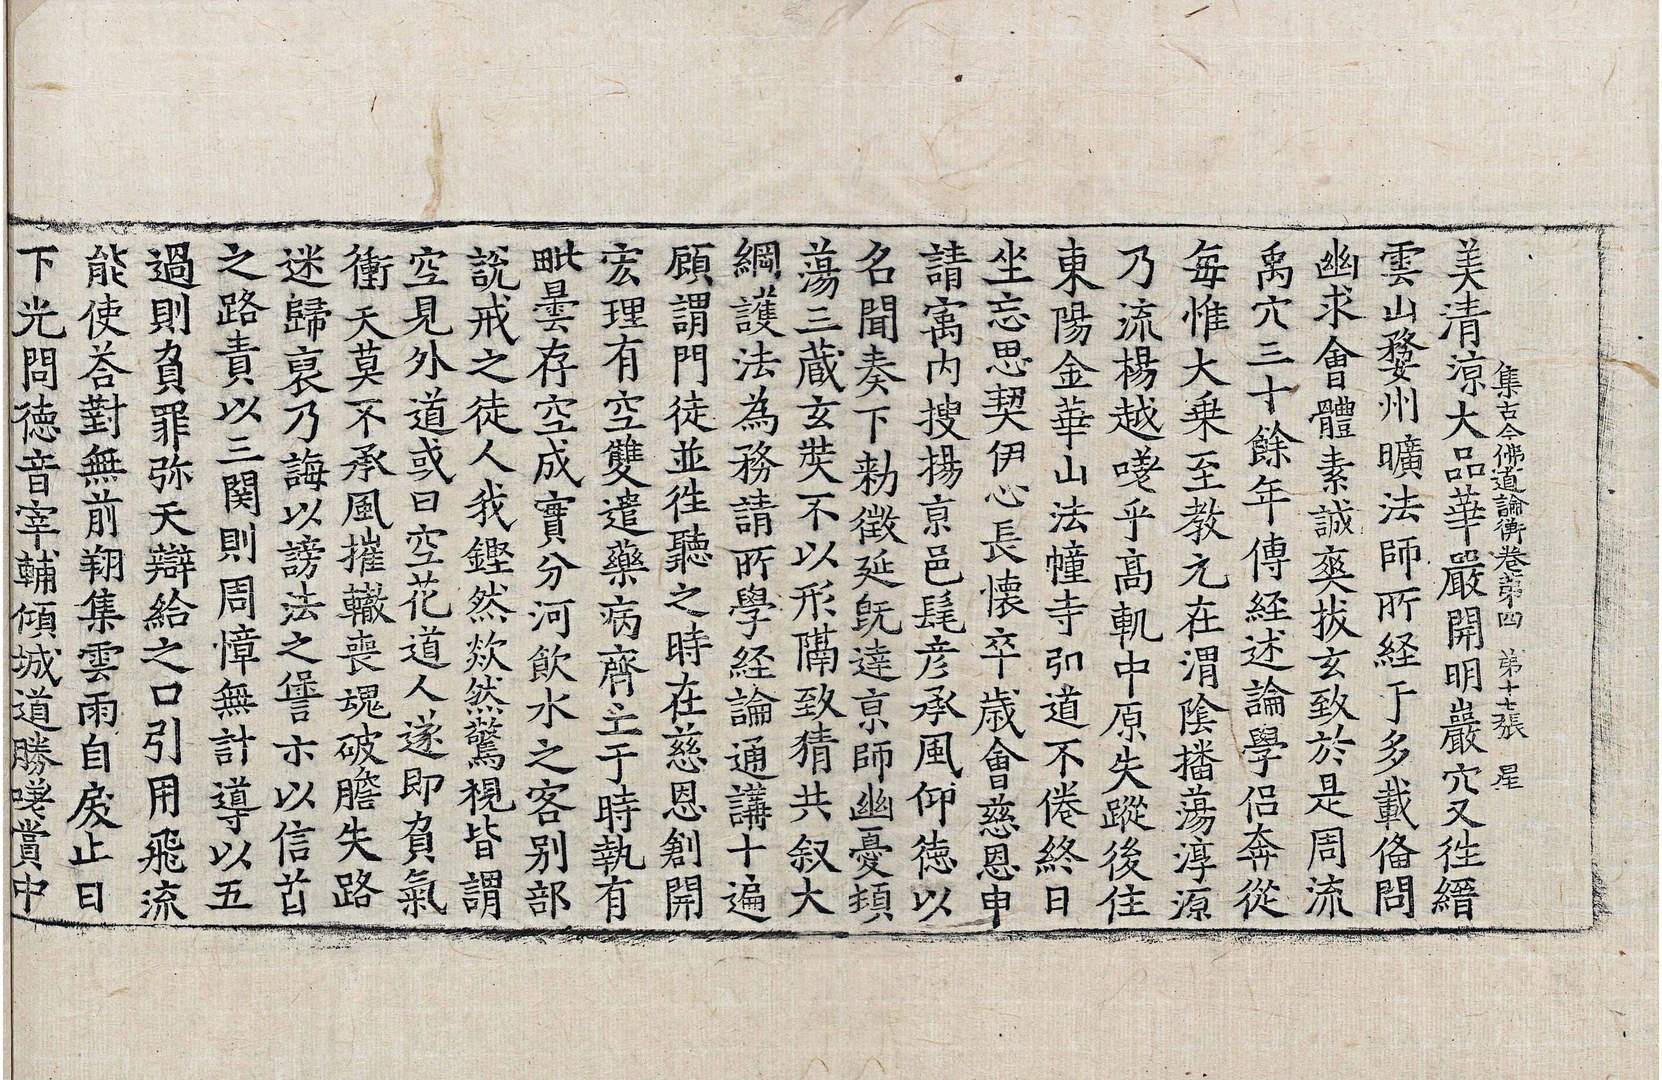 集古今佛道論衡卷第四　第十七張　星
美清涼大品華嚴開明巖穴又往縉
雲山婺州曠法師所経于多載俻問
幽求會體素誠奕拔玄致於是周流
禹穴三十餘年傳経述論學侶奔從
每惟大乗至教元在渭陰播蕩淳源
乃流楊越嘆乎高軌中原失蹤後住
東陽金華山法幢寺引道不倦終日
坐忘思契伊心長懷卒歳會慈恩申
請寓内搜揚京邑髦彦承風仰徳以
名聞奏下勑徵延既達京師幽憂頻
蕩三蔵玄奘不以形隔致猜共叙大
綱護法為務請所學経論通講十遍
顧謂門徒並往聽之時在慈恩創開
宏理有空雙遣藥病齊亡于時執有
毗曇存空成實分河飲水之客別部
說戒之徒人我鏗然欻然驚視皆謂
空見外道或曰空花道人遂即負氣
衝天莫不承風摧轍喪魂破膽失路
迷歸裏乃誨以謗法之諐示以信首
之路責以三関則周慞無計導以五
過則負罪弥天辯給之口引用飛流
能使荅對無前翔集雲雨自戾止日
下光問徳音宰輔傾城道勝嘆賞中